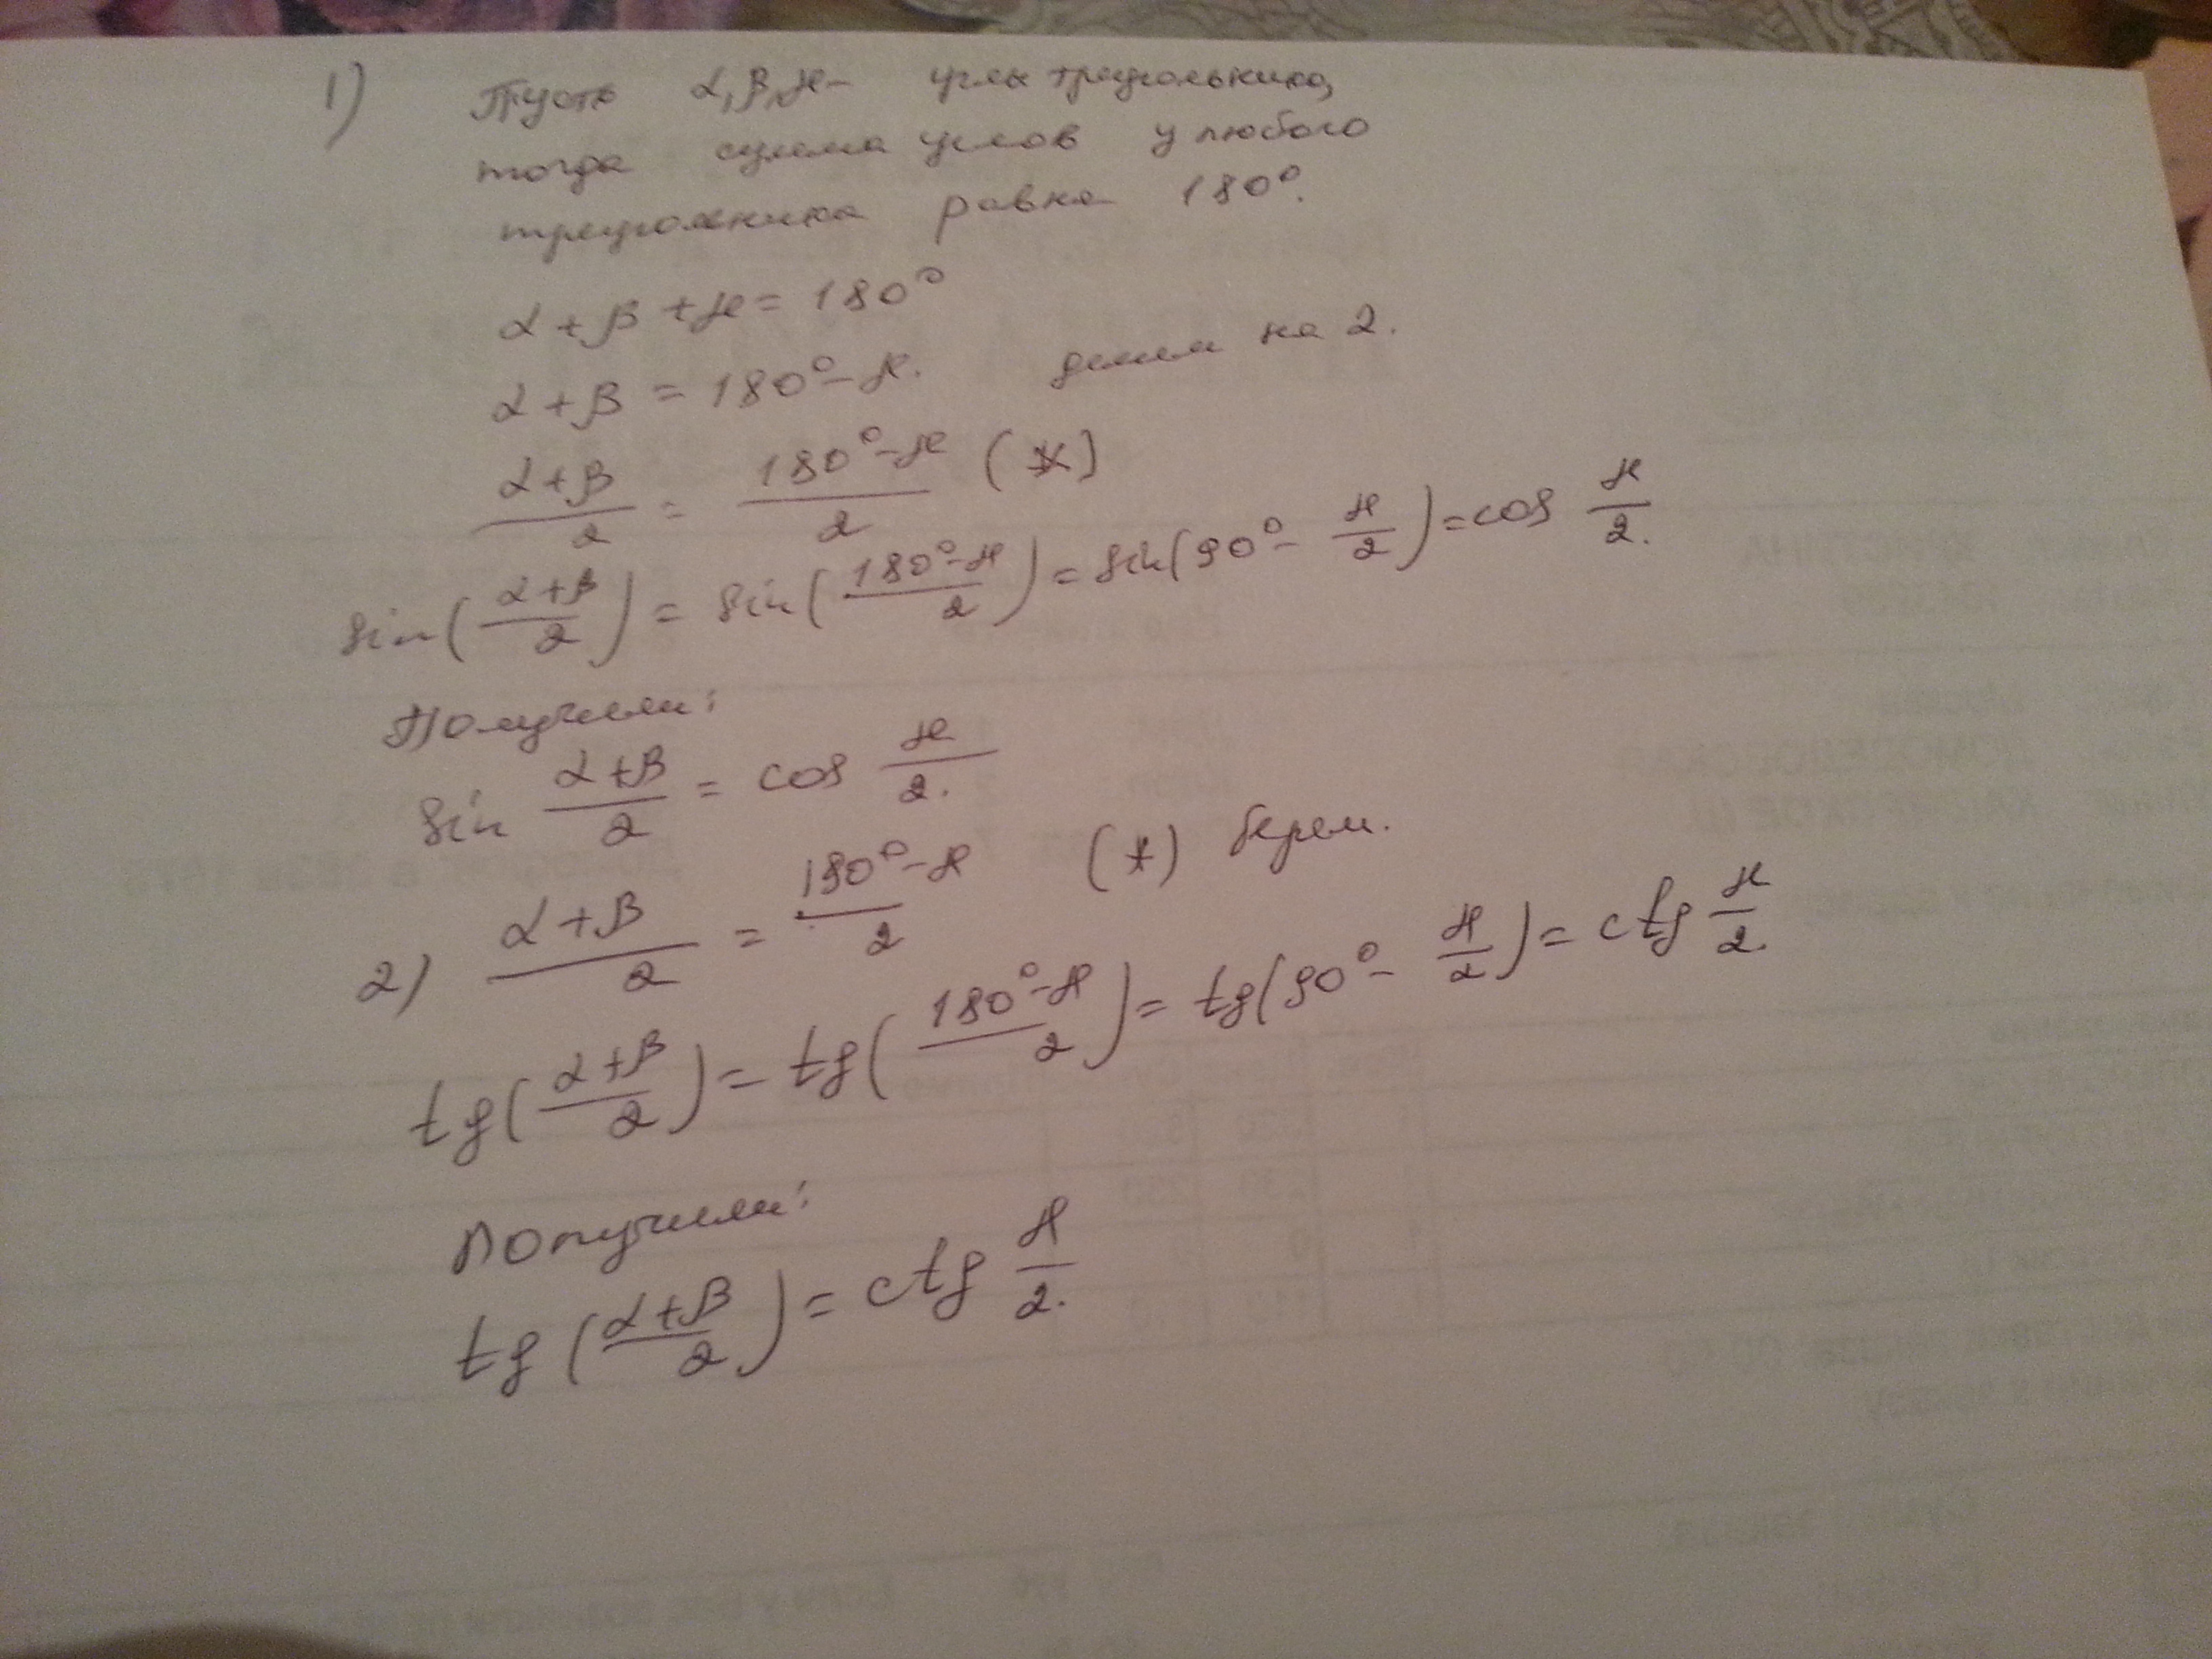 1) Пусть α, β, γ – углы треугольника,
тогда сумма углов у любого
треугольника равна 180°.
α + β + γ = 180°
α + β = 180° – γ. делим на 2.
(α + β)/2 = (180° – γ)/2 (*)
sin((α + β)/2) = sin((180° – γ)/2) = sin(90° – γ/2) = cos γ/2.
Получили:
sin (α + β)/2 = cos γ/2.
2) (α + β)/2 = (180° – γ)/2 (*) берем.
tg((α + β)/2) = tg((180° – γ)/2) = tg(90° – γ/2) = ctg γ/2.
Получили:
tg((α + β)/2) = ctg γ/2.